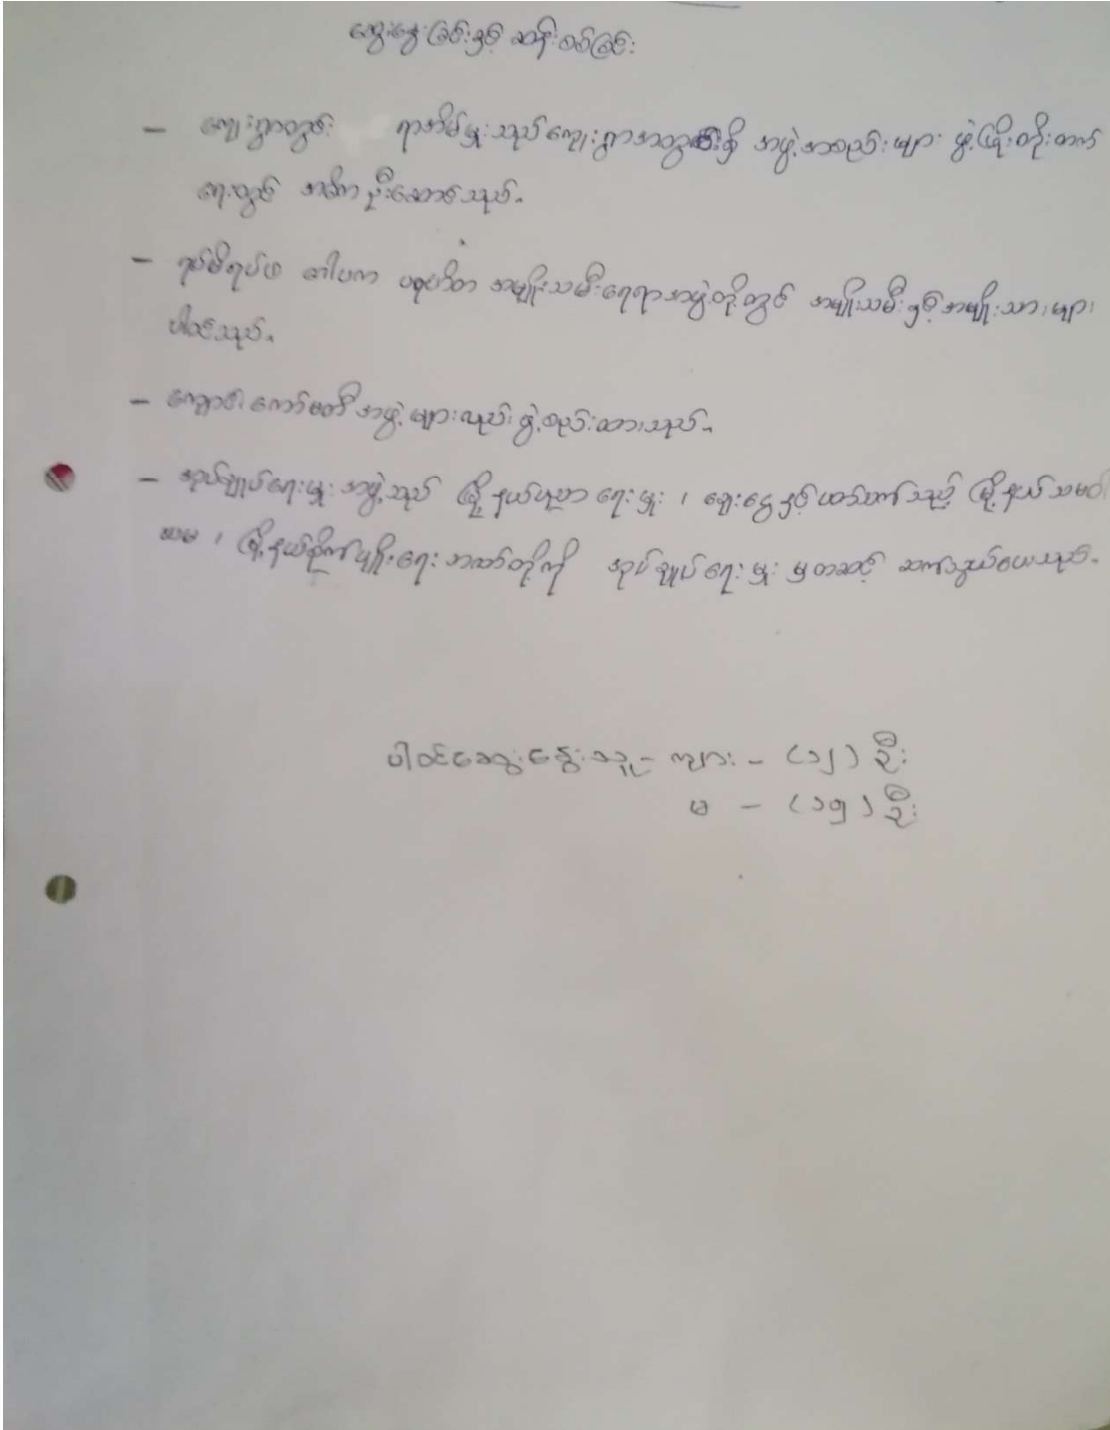 ဆွေးနွေးခြင်းနှင့် ဆန်းစစ်ခြင်း
- ကျေးရွာတွင်း ရာအိမ်မှူးသည် ကျေးရွာအတွင်းရှိ အဖွဲ့အစည်းများ ဖွံ့ဖြိုးတိုးတက်
ရေးတွင် အဓိက ဦးဆောင်သည်။
- ရပ်မိရပ်ဖ ဂေါပက ပရဟိတ အမျိုးသမီးရေးရာအဖွဲ့တို့တွင် အမျိုးသမီးနှင့်အမျိုးသားများ
ပါဝင်သည်။
- ကျောင်း ကော်မတီအဖွဲ့များလည်း ဖွဲ့စည်းထားသည်။
- အုပ်ချုပ်ရေးမှူးအဖွဲ့သည် မြို့နယ်ပညာရေးမှူး၊ ချေးငွေနှင့်ပတ်သက်သည့် မြို့နယ်သမဝါ
ယမ၊ မြို့နယ်စိုက်ပျိုးရေး ဘဏ်တို့ကို အုပ်ချုပ်ရေးမှူးမှတဆင့် ဆက်သွယ်ပေးသည်။
ပါဝင်ဆွေးနွေးသူ - ကျား - (၁၂) ဦး
မ - (၁၅) ဦး